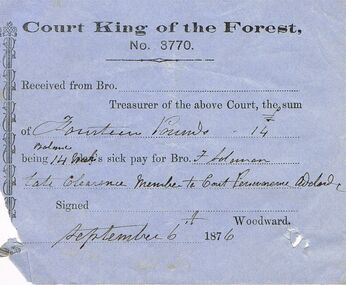 Court King of the Forest,
No. 3770.
Received from Bro.
Treasurer of the above Court, the sum
of Fourteen Pounds - 14
Balance
being 14 sick pay for Bro. F
late Clearance Member to Court
Signed
Woodward.
September 6 1876